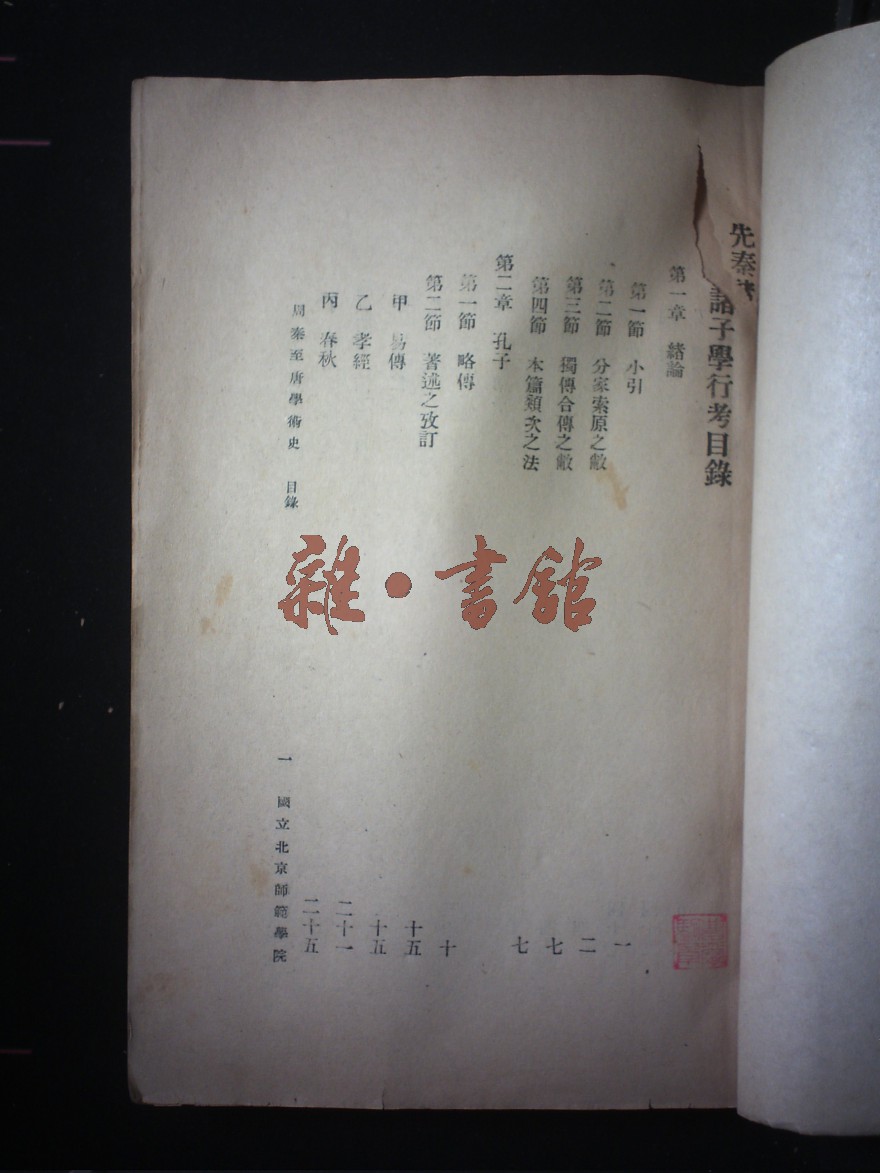 先秦諸子學行考目錄
第一章　緒論
第一節　小引　一
第二節　分家索原之敝　二
第三節　獨傳合傳之敝　七
第四節　本篇類次之法　七
第二章　孔子
第一節　略傳　十
第二節　著述之攷訂　十五
甲　易傳　十五
乙　孝經　二十一
丙　春秋　二十五
周秦至唐學術史　目錄　一　國立北京師範學院
雜・書館